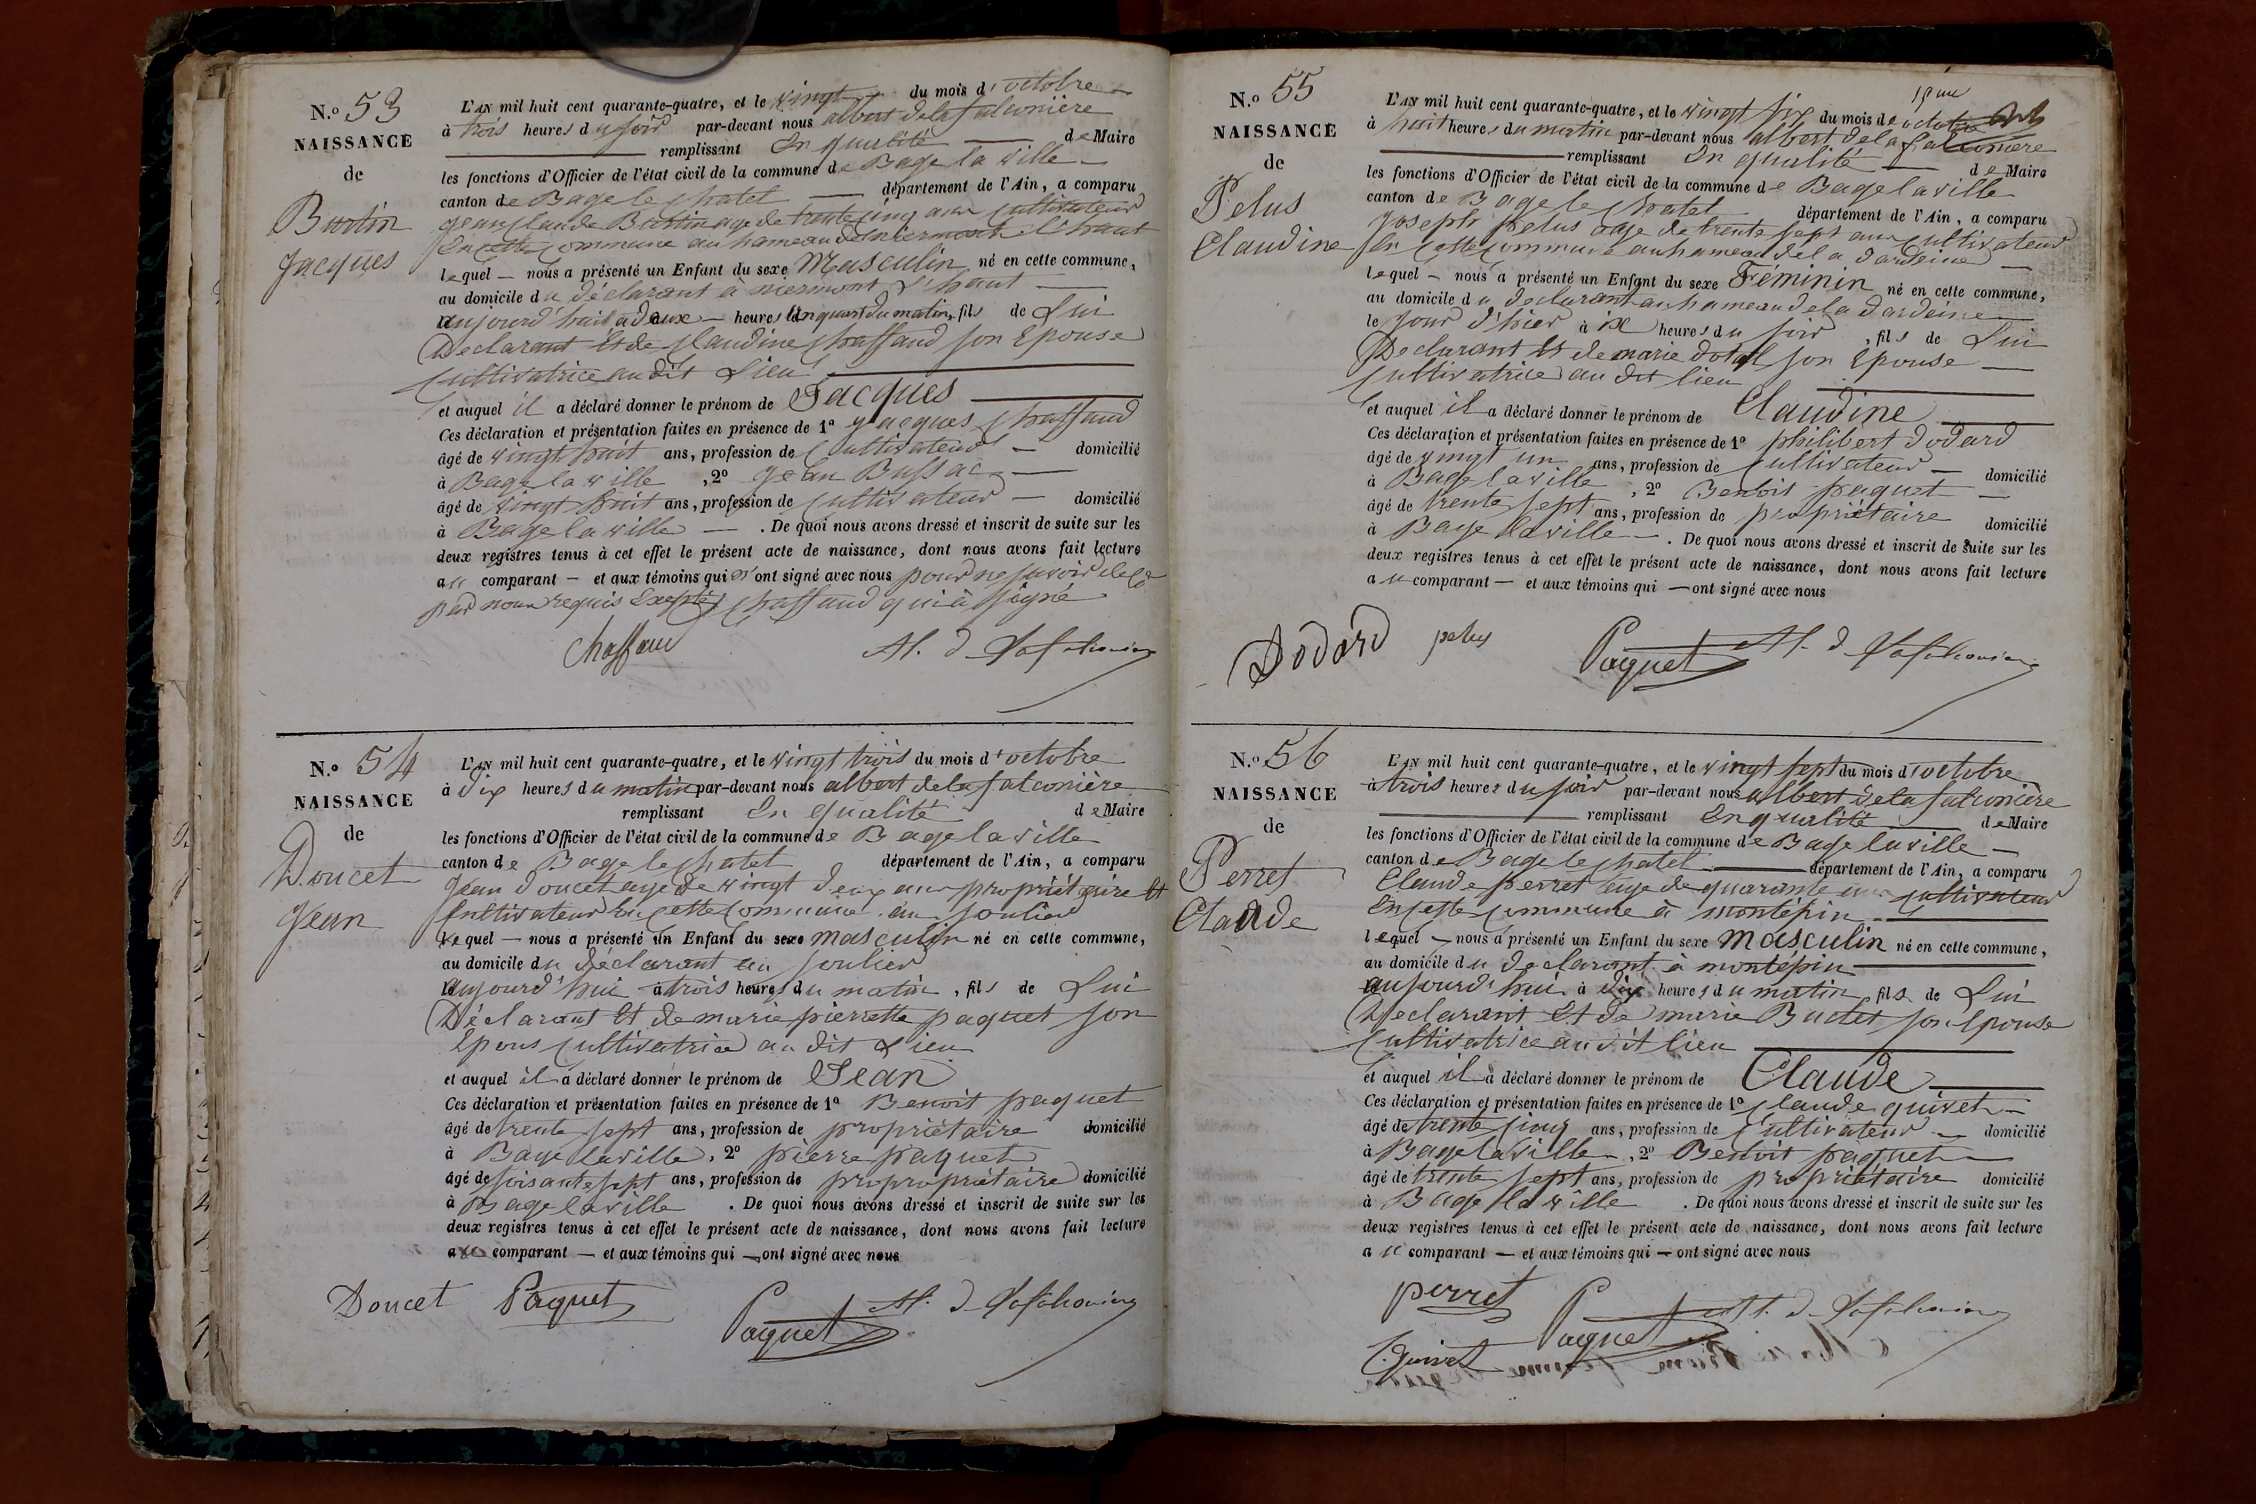 N.o 53
NAISSANCE
de
Burtin
Jacques
L'AN mil huit cent quarante-quatre, et le vingt du mois d'octobre
à trois heures du soir par-devant nous albert delafalconière
remplissant En qualité de Maire
les fonctions d'Officier de l'état civil de la commune de Bage la ville
canton de Bage le chatel département de l'Ain, a comparu
jean claude Burtin age de trente cinq ans cultivateur
En cette commune au hameau de mermont l'haut
lequel — nous a présenté un Enfant du sexe Masculin né en cette commune,
au domicile du déclarant à mermont l'haut
aujourd'hui à deux heures un quart du matin, fils de Lui
Declarant Et de Claudine Chaffaud son Epouse
cultivatrice au dit Lieu
et auquel il a déclaré donner le prénom de Jacques
Ces déclaration et présentation faites en présence de 1o jacques Chaffaud
âgé de vingt huit ans, profession de Cultivateur — domicilié
à Bage la ville, 2o jean Bussac
âgé de vingt huit ans, profession de cultivateur — domicilié
à Bage la ville — . De quoi nous avons dressé et inscrit de suite sur les
deux registres tenus à cet effet le présent acte de naissance, dont nous avons fait lecture
au comparant — et aux témoins qui n'ont signé avec nous pour ne savoir de ce
par nous requis Excepté Chaffaud qui à signé
Chaffaud
Al. d Lafalconière
N.o 54
NAISSANCE
de
Doucet
Jean
L'AN mil huit cent quarante-quatre, et le vingt trois du mois d'octobre
à dix heures du matin par-devant nous albert delafalconière
remplissant En qualité de Maire
les fonctions d'Officier de l'état civil de la commune de Bage la ville
canton de Bage le chatel département de l'Ain, a comparu
jean doucet age de vingt deux ans propriétaire Et
Cultivateur En cette commune au soulier
lequel — nous a présenté un Enfant du sexe masculin né en cette commune,
au domicile du déclarant au soulier
aujourd'hui à trois heures du matin, fils de Lui
Déclarant Et de marie pierrette paquet son
Epous cultivatrice au dit Lieu
et auquel il a déclaré donner le prénom de Jean
Ces déclaration et présentation faites en présence de 1o Benoit paquet
âgé de trente sept ans, profession de propriétaire domicilié
à Bage la ville, 2o pierre paquet
âgé de soisante sept ans, profession de propropriétaire domicilié
à Bage la ville . De quoi nous avons dressé et inscrit de suite sur les
deux registres tenus à cet effet le présent acte de naissance, dont nous avons fait lecture
au comparant — et aux témoins qui — ont signé avec nous
Doucet Paquet Paquet Al. d Lafalconière
N.o 55
NAISSANCE
de
Pelus
Claudine
L'AN mil huit cent quarante-quatre, et le vingt six du mois de octobre
à huit heures du matin par-devant nous albert delafalconière
remplissant En qualité de Maire
les fonctions d'Officier de l'état civil de la commune de Bage la ville
canton de Bage le chatel département de l'Ain, a comparu
joseph pelus age de trente sept ans cultivateur
En cette commune au hameau de la dardeine
lequel — nous a présenté un Enfant du sexe Féminin né en cette commune,
au domicile du declarant au hameau de la dardeine
le jour d'hier à six heures du soir, fils de Lui
Declarant Et de marie dotal son Epouse
cultivatrice au dit lieu
et auquel il a déclaré donner le prénom de Claudine
Ces déclaration et présentation faites en présence de 1o philibert dodard
âgé de vingt un ans, profession de cultivateur — domicilié
à Bage la ville, 2o Benois paquet
âgé de trente sept ans, profession de propriétaire domicilié
à Bage la ville — . De quoi nous avons dressé et inscrit de suite sur les
deux registres tenus à cet effet le présent acte de naissance, dont nous avons fait lecture
au comparant — et aux témoins qui — ont signé avec nous
Dodard pelus Paquet Al. d Lafalconière
N.o 56
NAISSANCE
de
Perret
Claude
L'AN mil huit cent quarante-quatre, et le vingt sept du mois d'octobre
à trois heures du soir par-devant nous albert delafalconière
remplissant En qualité de Maire
les fonctions d'Officier de l'état civil de la commune de Bage la ville
canton de Bage le chatel département de l'Ain, a comparu
Claude perret age de quarante ans cultivateur
En cette commune à montépin
lequel — nous a présenté un Enfant du sexe Masculin né en cette commune,
au domicile du declarant à montépin
aujourd'hui à dix heures du matin, fils de Lui
Declarant Et de marie Buctet son Epouse
cultivatrice au dit lieu
et auquel il a déclaré donner le prénom de Claude
Ces déclaration et présentation faites en présence de 1o claude guivet
âgé de trente cinq ans, profession de cultivateur — domicilié
à Bage la ville, 2o Benoit paquet
âgé de trente sept ans, profession de propriétaire domicilié
à Bage la ville . De quoi nous avons dressé et inscrit de suite sur les
deux registres tenus à cet effet le présent acte de naissance, dont nous avons fait lecture
au comparant — et aux témoins qui — ont signé avec nous
perret Paquet Al. d Lafalconière
C. guivet